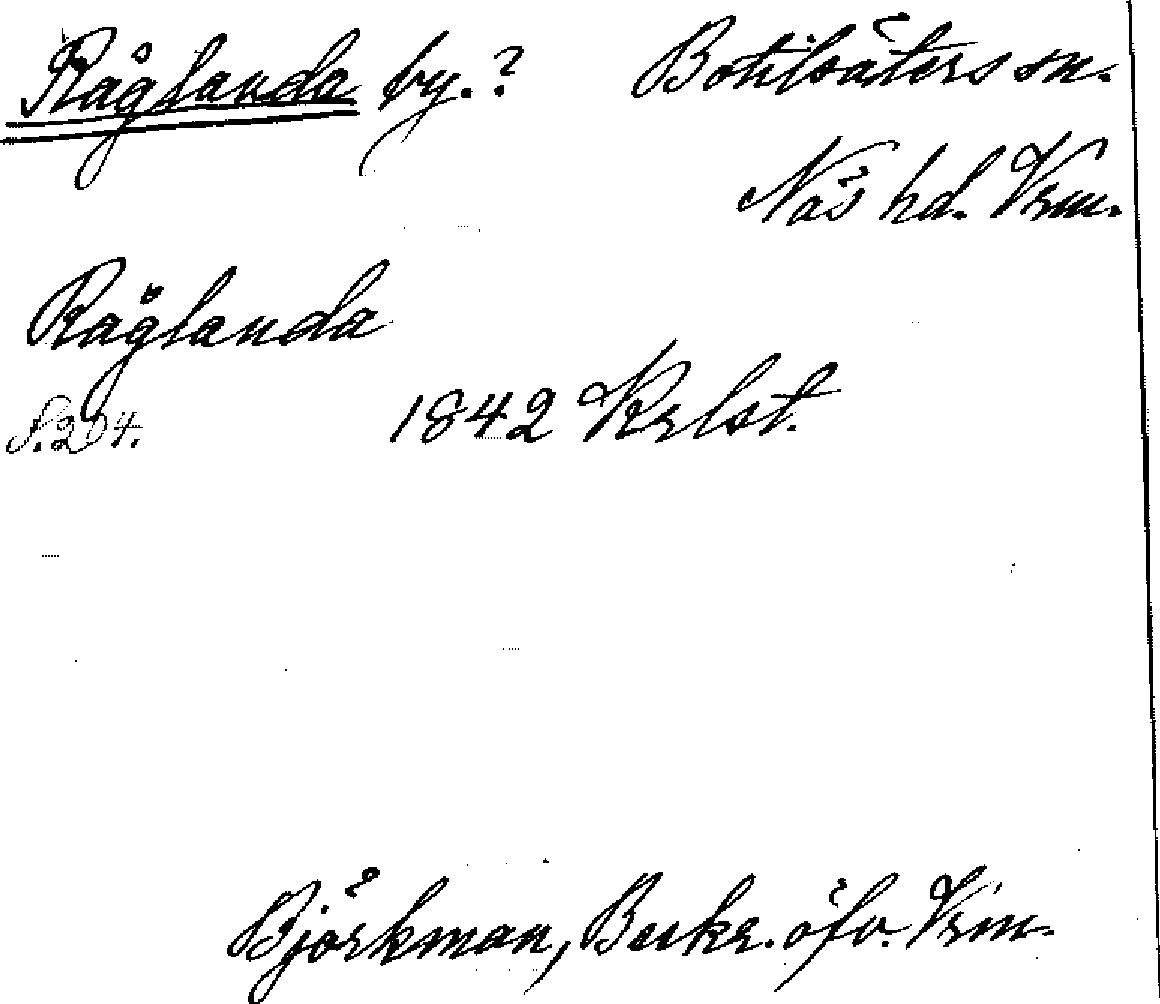 Råglanda by.? Botilsäters sn.
Näs hd. Vrm.
Råglanda
S. 204. 1842 Krlst.
Björkman, Beskr. öfv. Vrm.